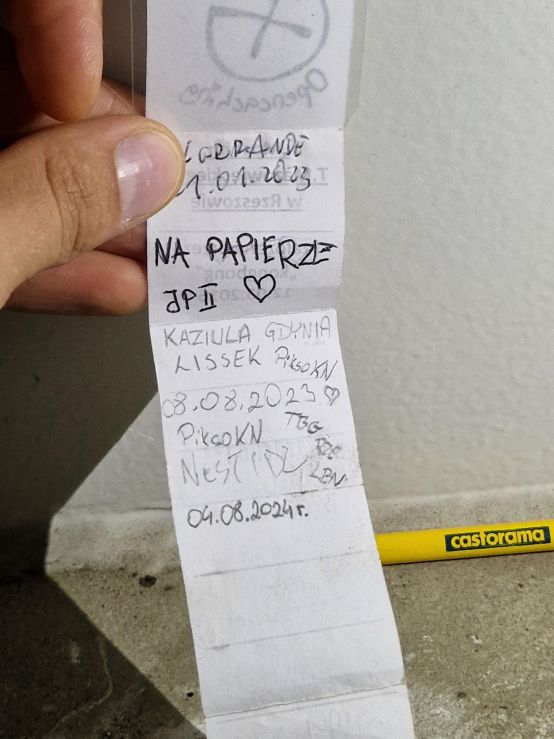 Opencaching
GRRANDE
1.01.2023
w Rzeszowie
NA PAPIERZE
JP II ♡
KAZIULA GDYNIA
LISSEK PiksoKN
08.08.2023 ♡
PiksoKN TBG
NEST
RDE
LBN
04.08.2024r.
castorama